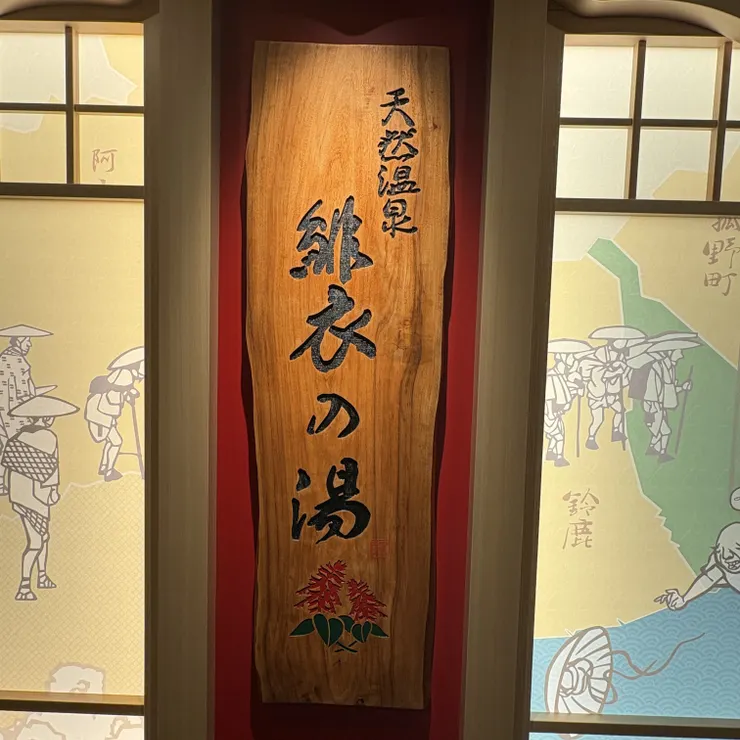 天然温泉
緋衣の湯
阿
野町
鈴鹿